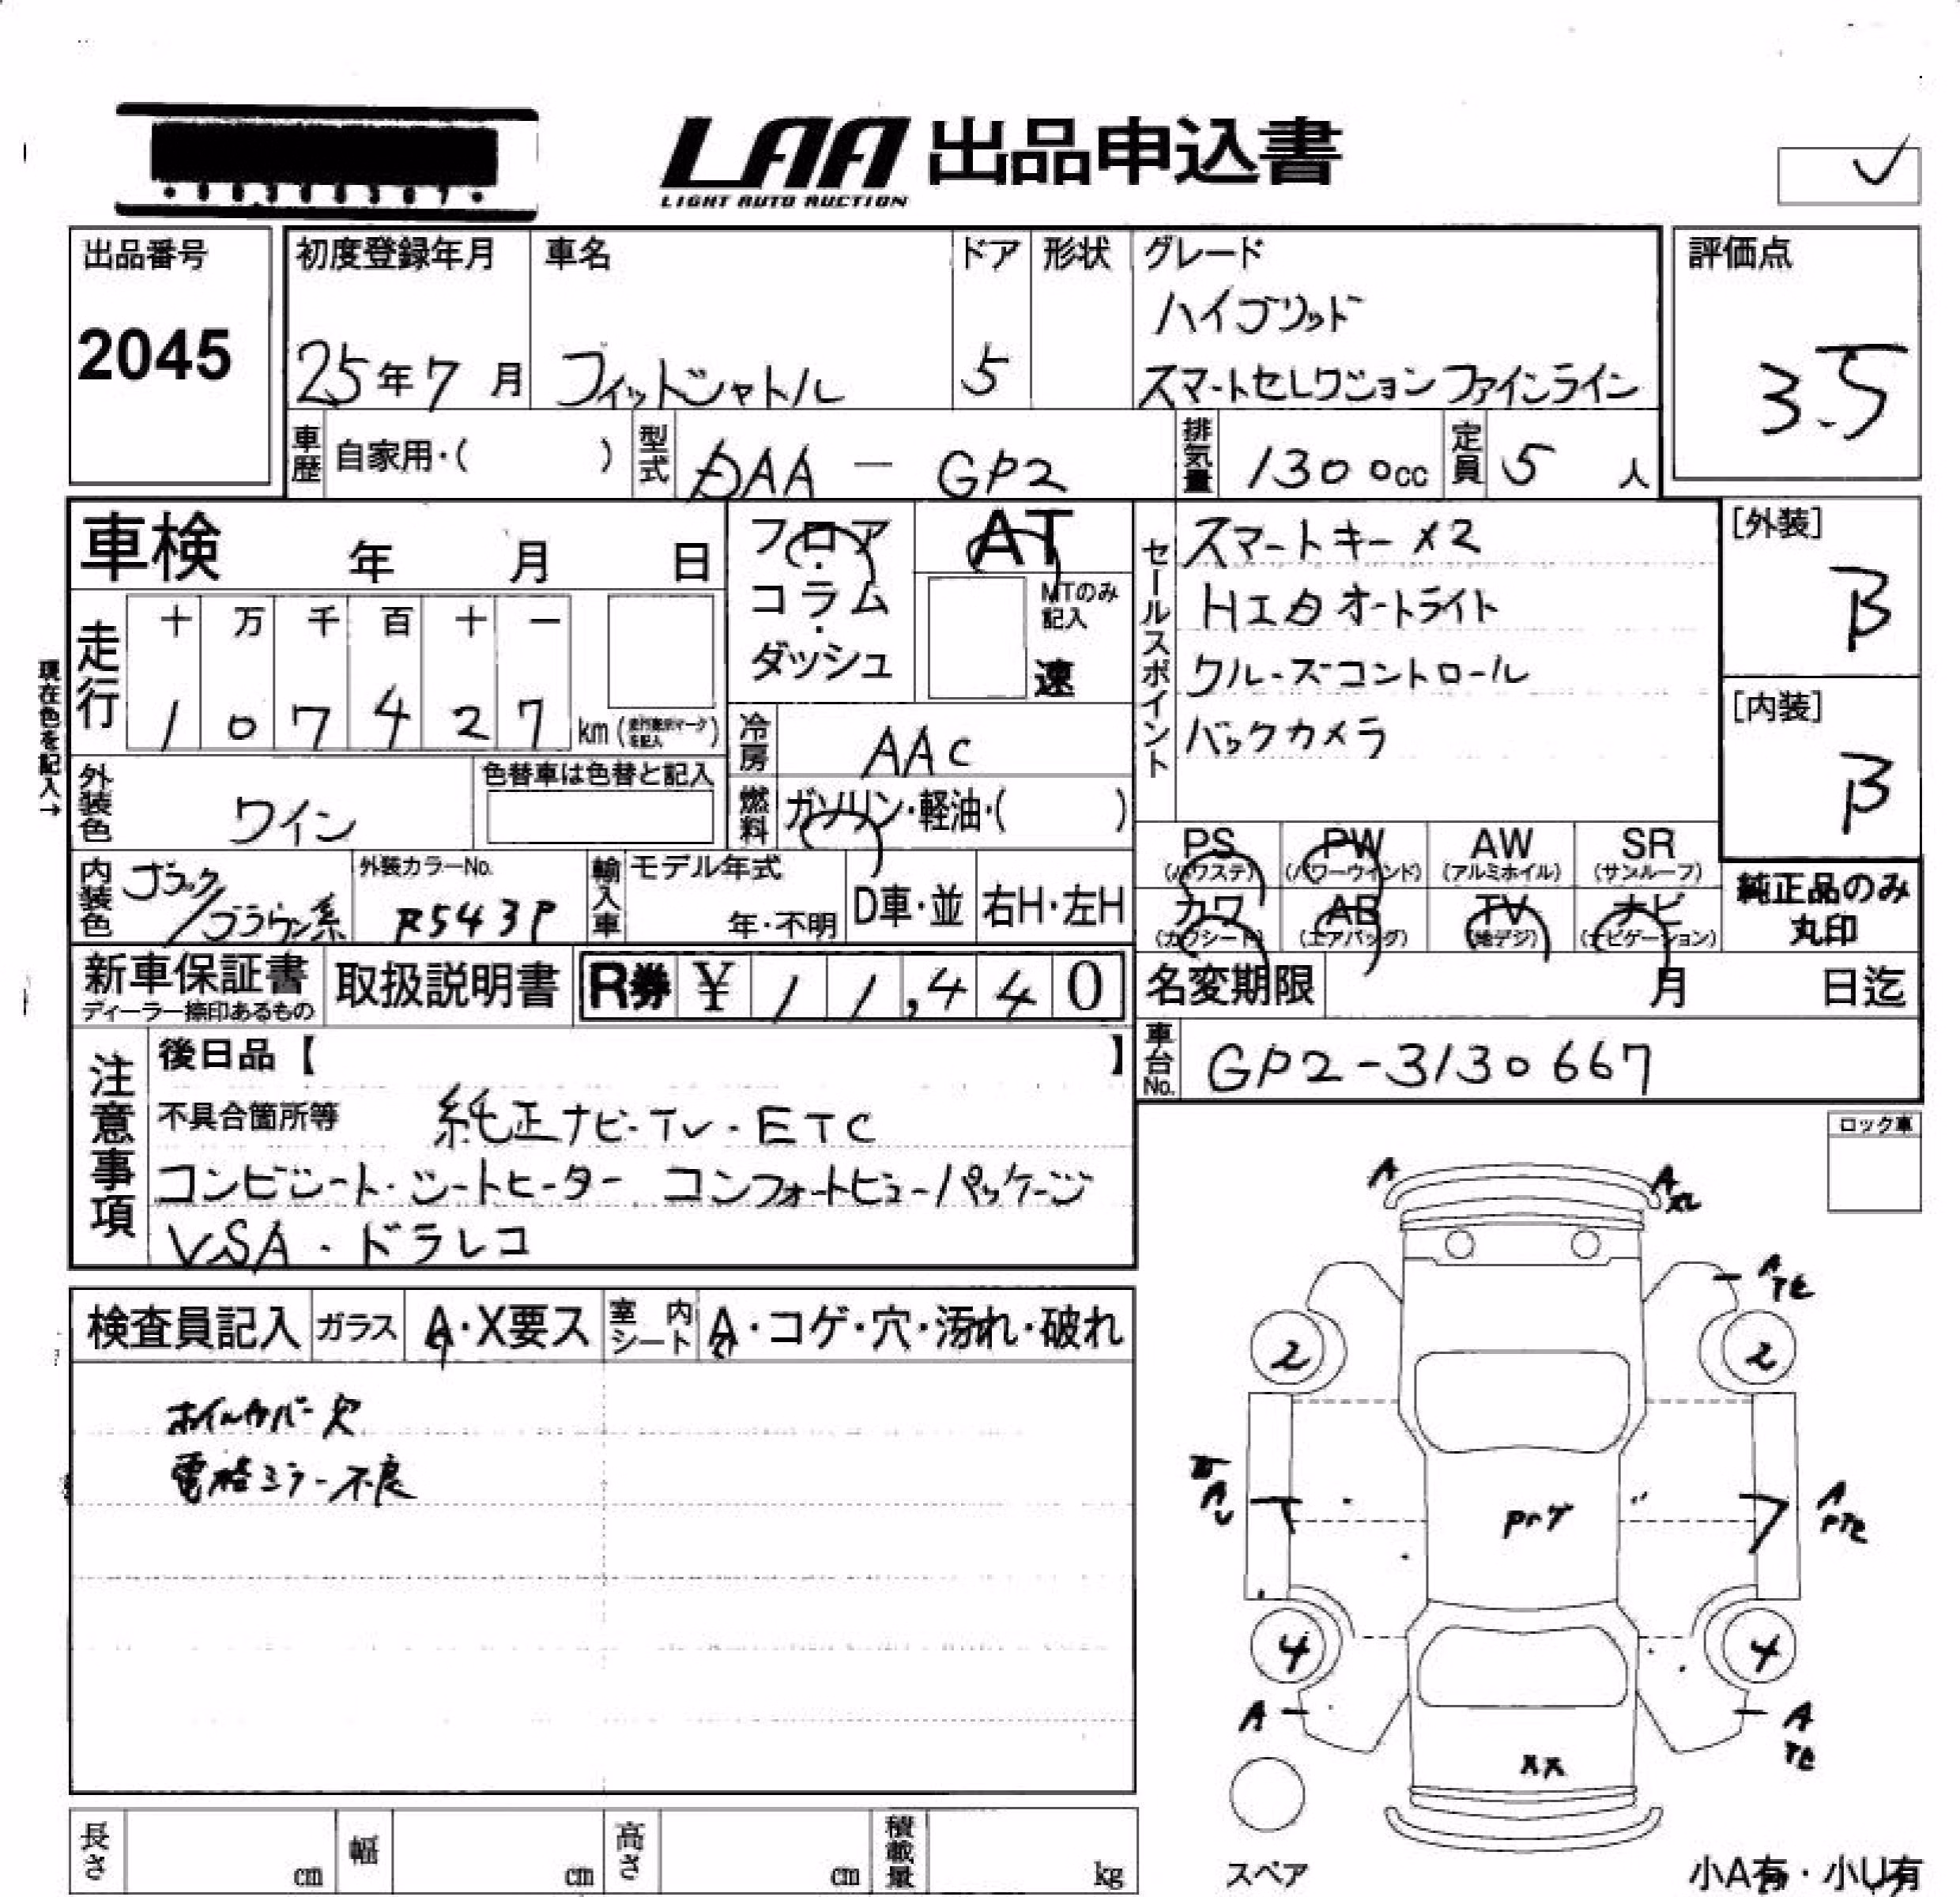 LAA 出品申込書
LIGHT AUTO AUCTION
出品番号
2045
初度登録年月
25年7月
車名
フィットシャトル
ドア
5
形状
グレード
ハイブリッド
スマートセレクション ファインライン
評価点
3.5
車歴 自家用・( )
型式 DAA - GP2
排気量 1300cc
定員 5人
車検 年 月 日
フロア・コラム・ダッシュ
AT
MTのみ記入
速
セールスポイント
スマートキー×2
HID オートライト
クルーズコントロール
バックカメラ
[外装]
B
[内装]
B
現在色を記入→
走行
十 万 千 百 十 一
1 0 7 4 2 7 km
冷房 AAC
外装色 ワイン
色替車は色替と記入
燃料 ガソリン・軽油・( )
PS (パワステ)
PW (パワーウインド)
AW (アルミホイル)
SR (サンルーフ)
カワ (カワシート)
AB (エアバッグ)
TV (地デジ)
ナビ (ナビゲーション)
純正品のみ丸印
内装色 ブラック/ブラウン系
外装カラーNo. R543P
輸入車
モデル年式
年・不明
D車・並
右H・左H
新車保証書
ディーラー捺印あるもの
取扱説明書
R券 ¥11,440
名変期限 月 日迄
車台No. GP2-3130667
注意事項
後日品【 】
不具合箇所等 純正ナビ・TV・ETC
コンビシート・シートヒーター コンフォートビューパッケージ
VSA・ドラレコ
ロック車
検査員記入
ガラス A・X要ス
室内シート A・コゲ・穴・汚れ・破れ
ホイルカバー欠
電格ミラー不良
A
A
A
2
2
A
A
4
4
A
A
XX
スペア
小A有・小U有
長さ cm
幅 cm
高さ cm
積載量 kg